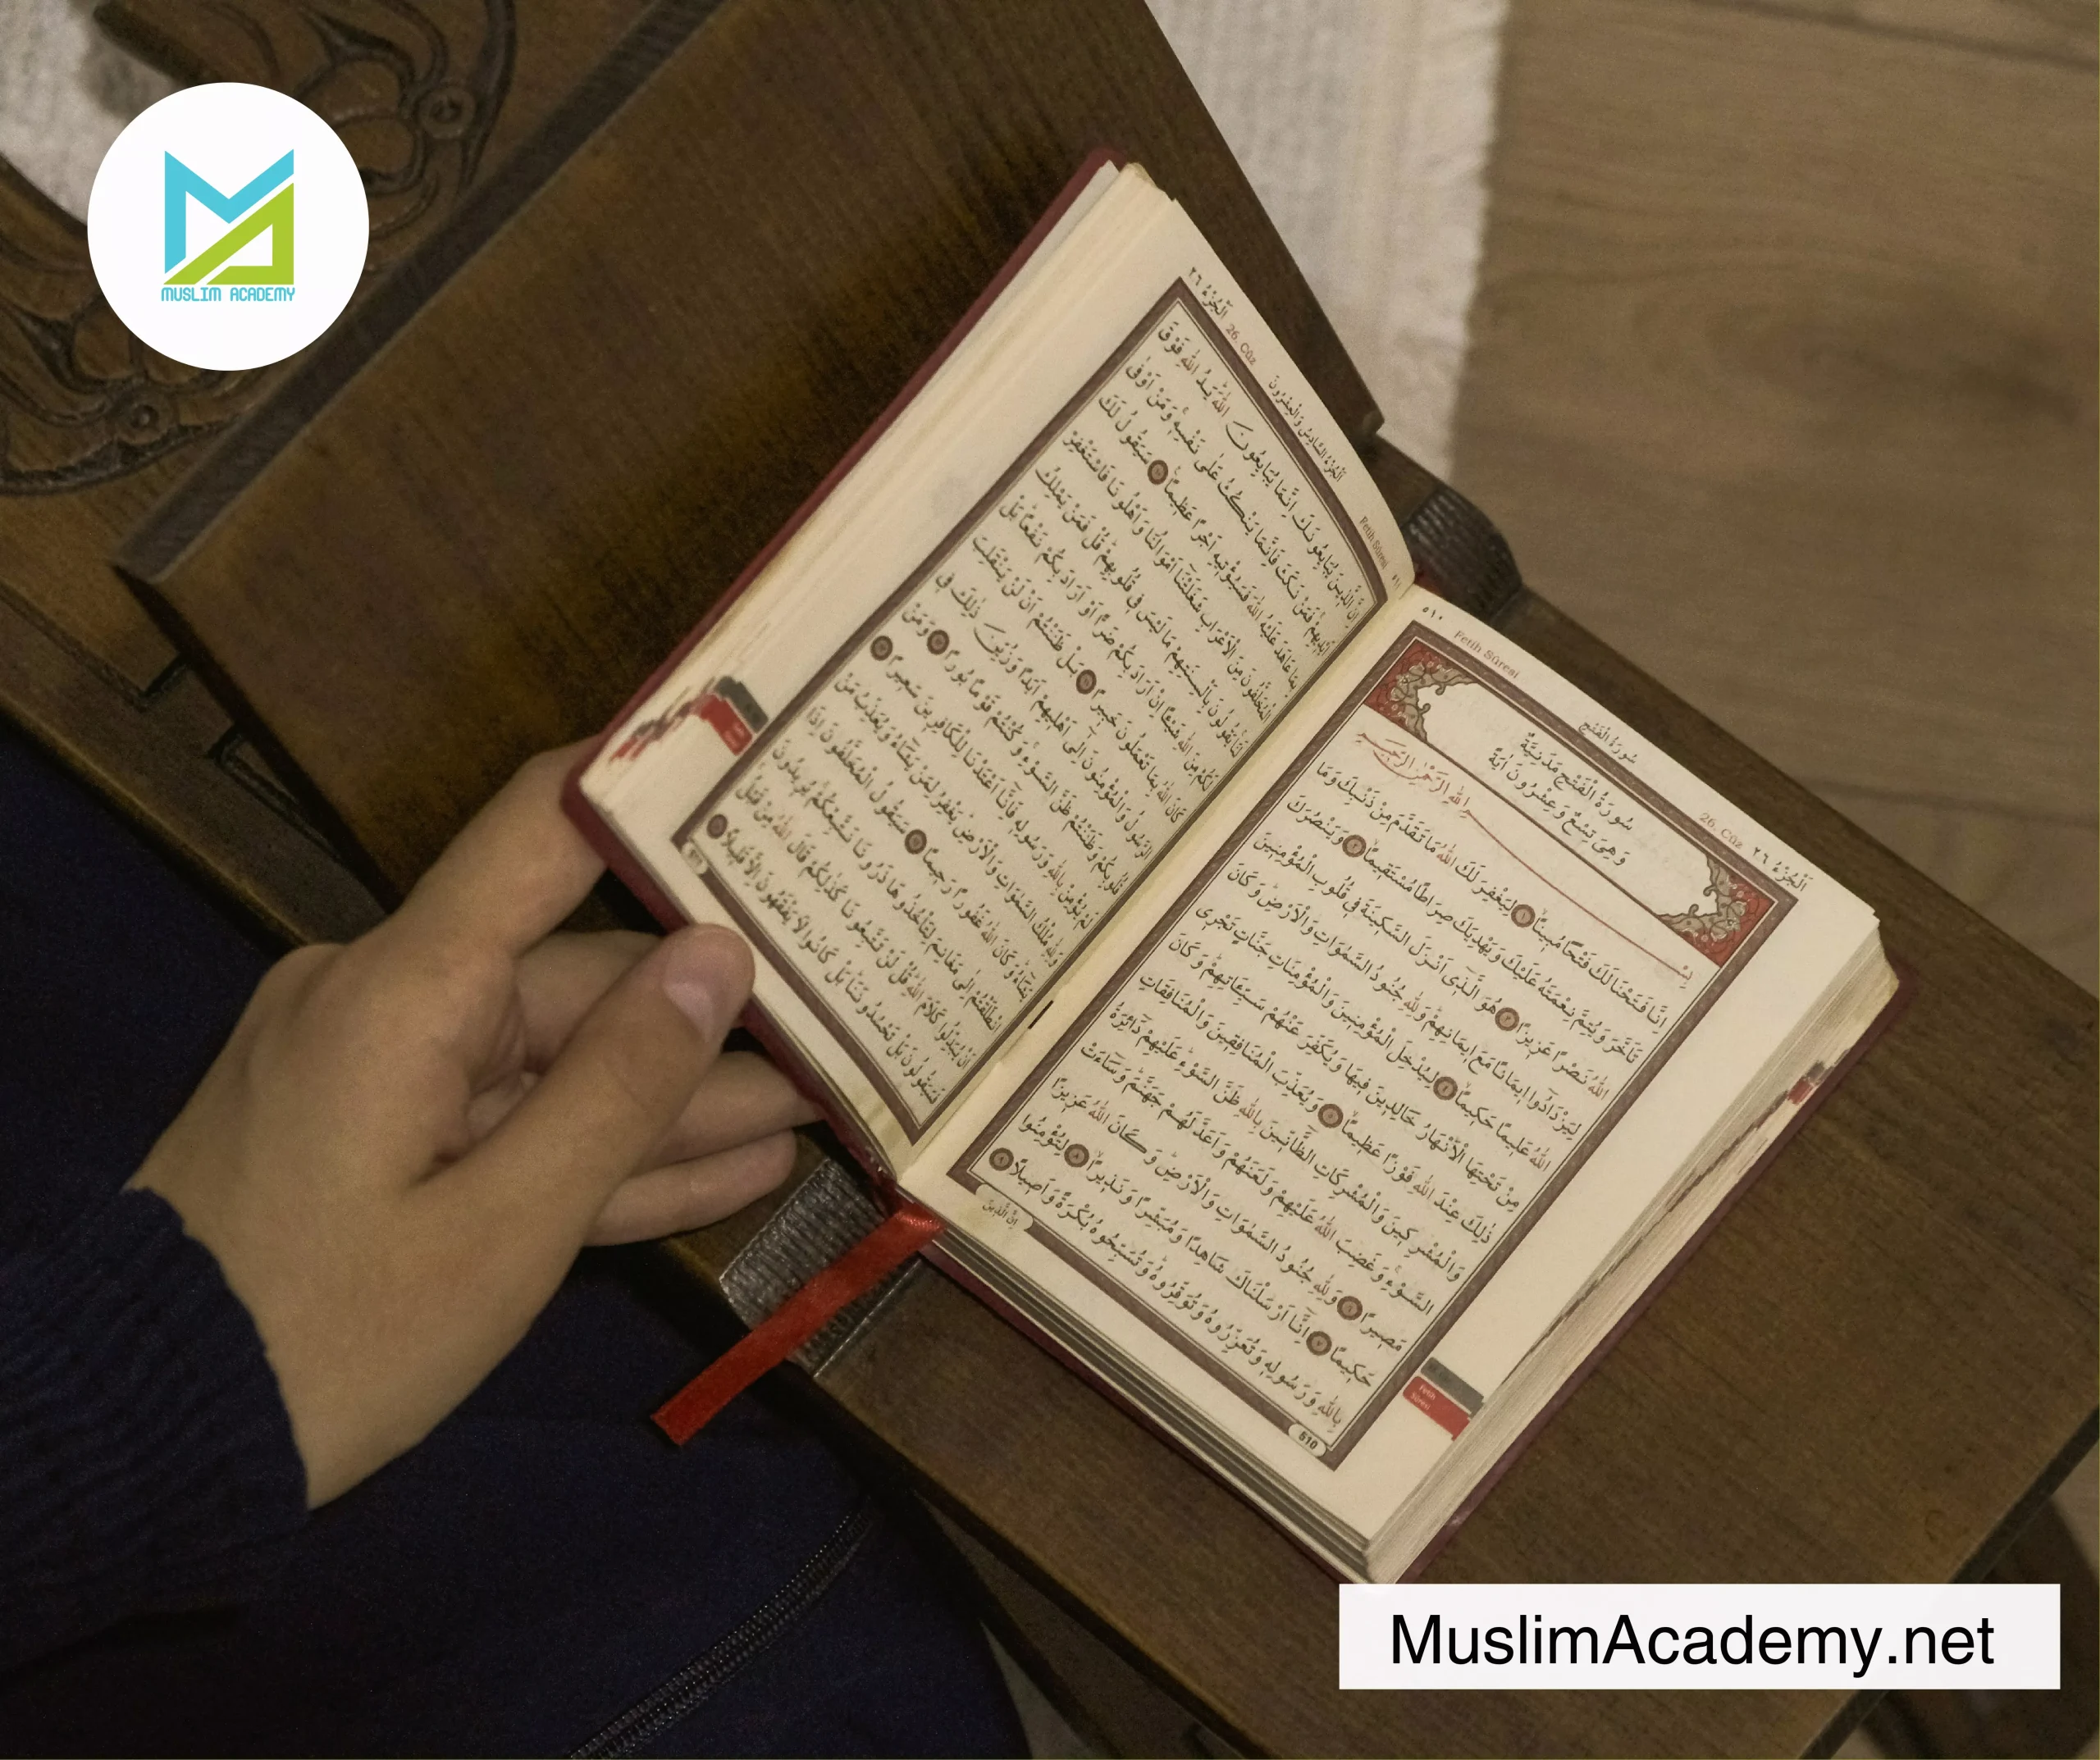 MUSLIM ACADEMY
٥١٠
Fetih Sûresi
سُورَةُ الْفَتْحِ
26. Cüz
اَلْجُزْءُ ٢٦
سُورَةُ الْفَتْحِ مَدَنِيَّةٌ
وَهِيَ تِسْعٌ وَعِشْرُونَ اٰيَةً
بِسْمِ اللّٰهِ الرَّحْمٰنِ الرَّحِيمِ
اِنَّا فَتَحْنَا لَكَ فَتْحًا مُبِينًاۙ ١ لِيَغْفِرَ لَكَ اللّٰهُ مَا تَقَدَّمَ مِنْ ذَنْبِكَ وَمَا
تَاَخَّرَ وَيُتِمَّ نِعْمَتَهُ عَلَيْكَ وَيَهْدِيَكَ صِرَاطًا مُسْتَقِيمًاۙ ٢ وَيَنْصُرَكَ
اللّٰهُ نَصْرًا عَزِيزًا ٣ هُوَ الَّذٖٓي اَنْزَلَ السَّكِينَةَ فِي قُلُوبِ الْمُؤْمِنِينَ
لِيَزْدَادُٓوا اِيمَانًا مَعَ اِيمَانِهِمْۜ وَلِلّٰهِ جُنُودُ السَّمٰوَاتِ وَالْاَرْضِۜ وَكَانَ
اللّٰهُ عَلِيمًا حَكِيمًاۙ ٤ لِيُدْخِلَ الْمُؤْمِنِينَ وَالْمُؤْمِنَاتِ جَنَّاتٍ تَجْرِي
مِنْ تَحْتِهَا الْاَنْهَارُ خَالِدِينَ فِيهَا وَيُكَفِّرَ عَنْهُمْ سَيِّـَٔاتِهِمْۜ وَكَانَ
ذٰلِكَ عِنْدَ اللّٰهِ فَوْزًا عَظِيمًاۙ ٥ وَيُعَذِّبَ الْمُنَافِقِينَ وَالْمُنَافِقَاتِ
وَالْمُشْرِكِينَ وَالْمُشْرِكَاتِ الظَّٓانِّينَ بِاللّٰهِ ظَنَّ السَّوْءِۜ عَلَيْهِمْ دَٓائِرَةُ
السَّوْءِۚ وَغَضِبَ اللّٰهُ عَلَيْهِمْ وَلَعَنَهُمْ وَاَعَدَّ لَهُمْ جَهَنَّمَۜ وَسَٓاءَتْ
مَصِيرًا ٦ وَلِلّٰهِ جُنُودُ السَّمٰوَاتِ وَالْاَرْضِۜ وَكَانَ اللّٰهُ عَزِيزًا
حَكِيمًا ٧ اِنَّٓا اَرْسَلْنَاكَ شَاهِدًا وَمُبَشِّرًا وَنَذِيرًاۙ ٨ لِتُؤْمِنُوا
بِاللّٰهِ وَرَسُولِهِ وَتُعَزِّرُوهُ وَتُوَقِّرُوهُۜ وَتُسَبِّحُوهُ بُكْرَةً وَاَصِيلًا ٩
510
اِنَّ الَّذِينَ
Fetih
Sûresi
Fetih Sûresi
اَلْجُزْءُ السَّادِسُ وَالْعِشْرُونَ
26. Cüz
اَلْجُزْءُ ٢٦
اِنَّ الَّذِينَ يُبَايِعُونَكَ اِنَّمَا يُبَايِعُونَ اللّٰهَۜ يَدُ اللّٰهِ فَوْقَ
اَيْدِيهِمْۚ فَمَنْ نَكَثَ فَاِنَّمَا يَنْكُثُ عَلٰى نَفْسِهِۚ وَمَنْ اَوْفٰى
بِمَا عَاهَدَ عَلَيْهُ اللّٰهَ فَسَيُؤْتِيهِ اَجْرًا عَظِيمًا ١٠ سَيَقُولُ لَكَ
الْمُخَلَّفُونَ مِنَ الْاَعْرَابِ شَغَلَتْنَٓا اَمْوَالُنَا وَاَهْلُونَا فَاسْتَغْفِرْ
لَنَاۚ يَقُولُونَ بِاَلْسِنَتِهِمْ مَا لَيْسَ فِي قُلُوبِهِمْۜ قُلْ فَمَنْ يَمْلِكُ
لَكُمْ مِنَ اللّٰهِ شَيْـًٔا اِنْ اَرَادَ بِكُمْ ضَرًّا اَوْ اَرَادَ بِكُمْ نَفْعًاۜ بَلْ
كَانَ اللّٰهُ بِمَا تَعْمَلُونَ خَبِيرًا ١١ بَلْ ظَنَنْتُمْ اَنْ لَنْ يَنْقَلِبَ
الرَّسُولُ وَالْمُؤْمِنُونَ اِلٰٓى اَهْلِيهِمْ اَبَدًا وَزُيِّنَ ذٰلِكَ فِي
قُلُوبِكُمْ وَظَنَنْتُمْ ظَنَّ السَّوْءِۚ وَكُنْتُمْ قَوْمًا بُورًا ١٢ وَمَنْ
لَمْ يُؤْمِنْ بِاللّٰهِ وَرَسُولِهِ فَاِنَّٓا اَعْتَدْنَا لِلْكَافِرِينَ سَعِيرًا ١٣
وَلِلّٰهِ مُلْكُ السَّمٰوَاتِ وَالْاَرْضِۜ يَغْفِرُ لِمَنْ يَشَٓاءُ وَيُعَذِّبُ مَنْ
يَشَٓاءُۜ وَكَانَ اللّٰهُ غَفُورًا رَحِيمًا ١٤ سَيَقُولُ الْمُخَلَّفُونَ اِذَا
انْطَلَقْتُمْ اِلٰى مَغَانِمَ لِتَأْخُذُوهَا ذَرُونَا نَتَّبِعْكُمْۚ يُرِيدُونَ
اَنْ يُبَدِّلُوا كَلَامَ اللّٰهِۜ قُلْ لَنْ تَتَّبِعُونَا كَذٰلِكُمْ قَالَ اللّٰهُ مِنْ قَبْلُۚ
فَسَيَقُولُونَ بَلْ تَحْسُدُونَنَاۜ بَلْ كَانُوا لَا يَفْقَهُونَ اِلَّا قَلِيلًا ١٥
MuslimAcademy.net